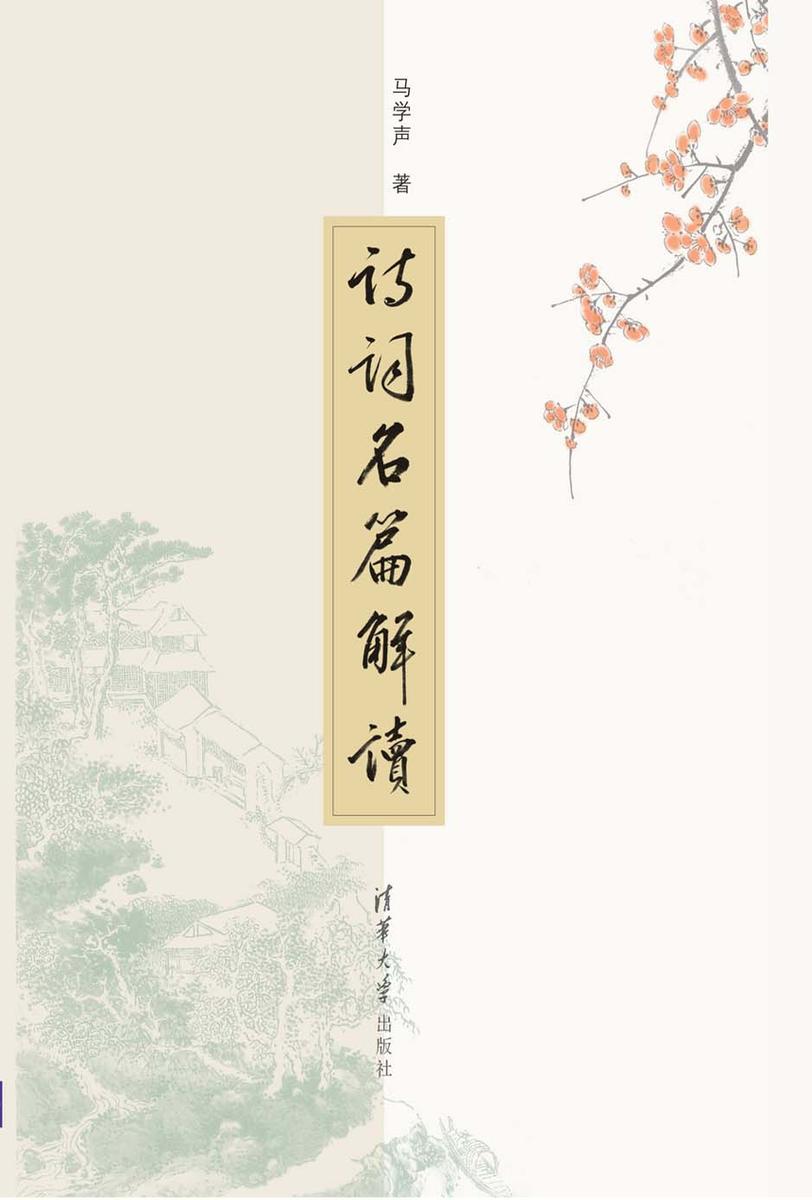 马学声 著
诗词名篇解讀
清華大学出版社